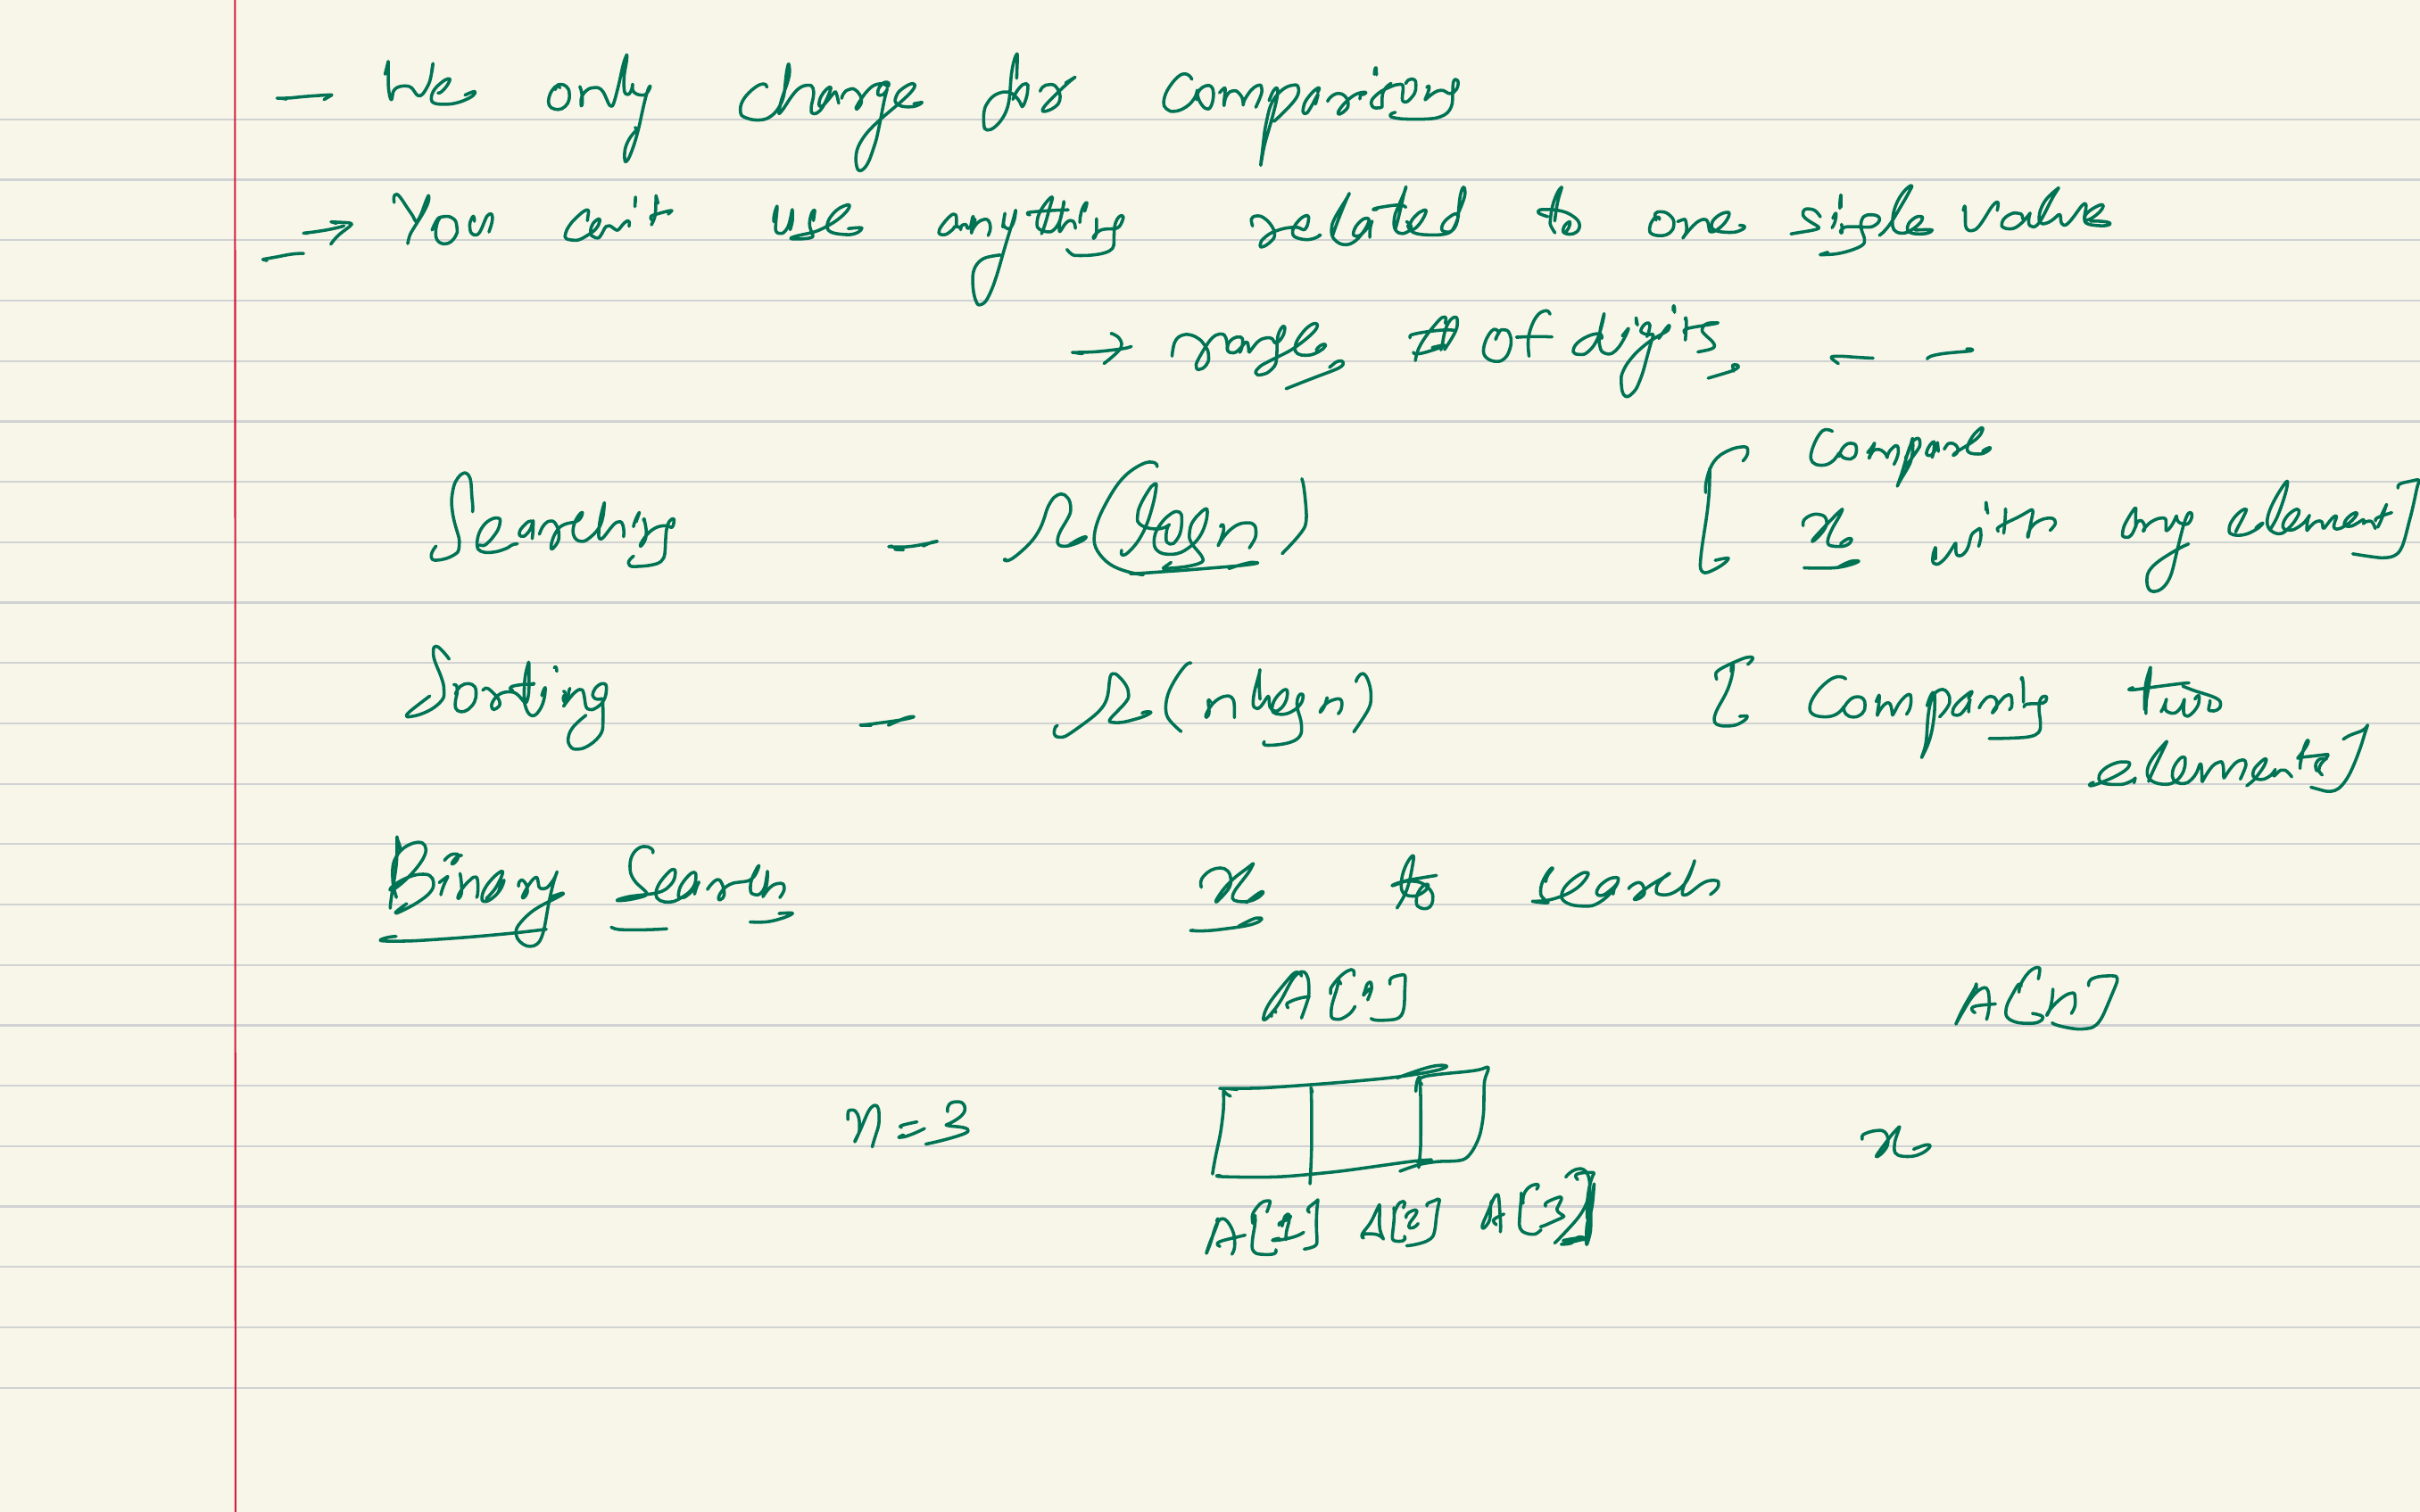 — We only charge for comparing
⇒ You can't use anything related to one single value
→ range # of digits - -
Searching — Ω(lgn) [ compare
x with any element]
Sorting — Ω(nlgn) [ Comparing two
elements]
Binary Search x to search
A[1] A[n]
n = 3 x
A[1] A[2] A[3]